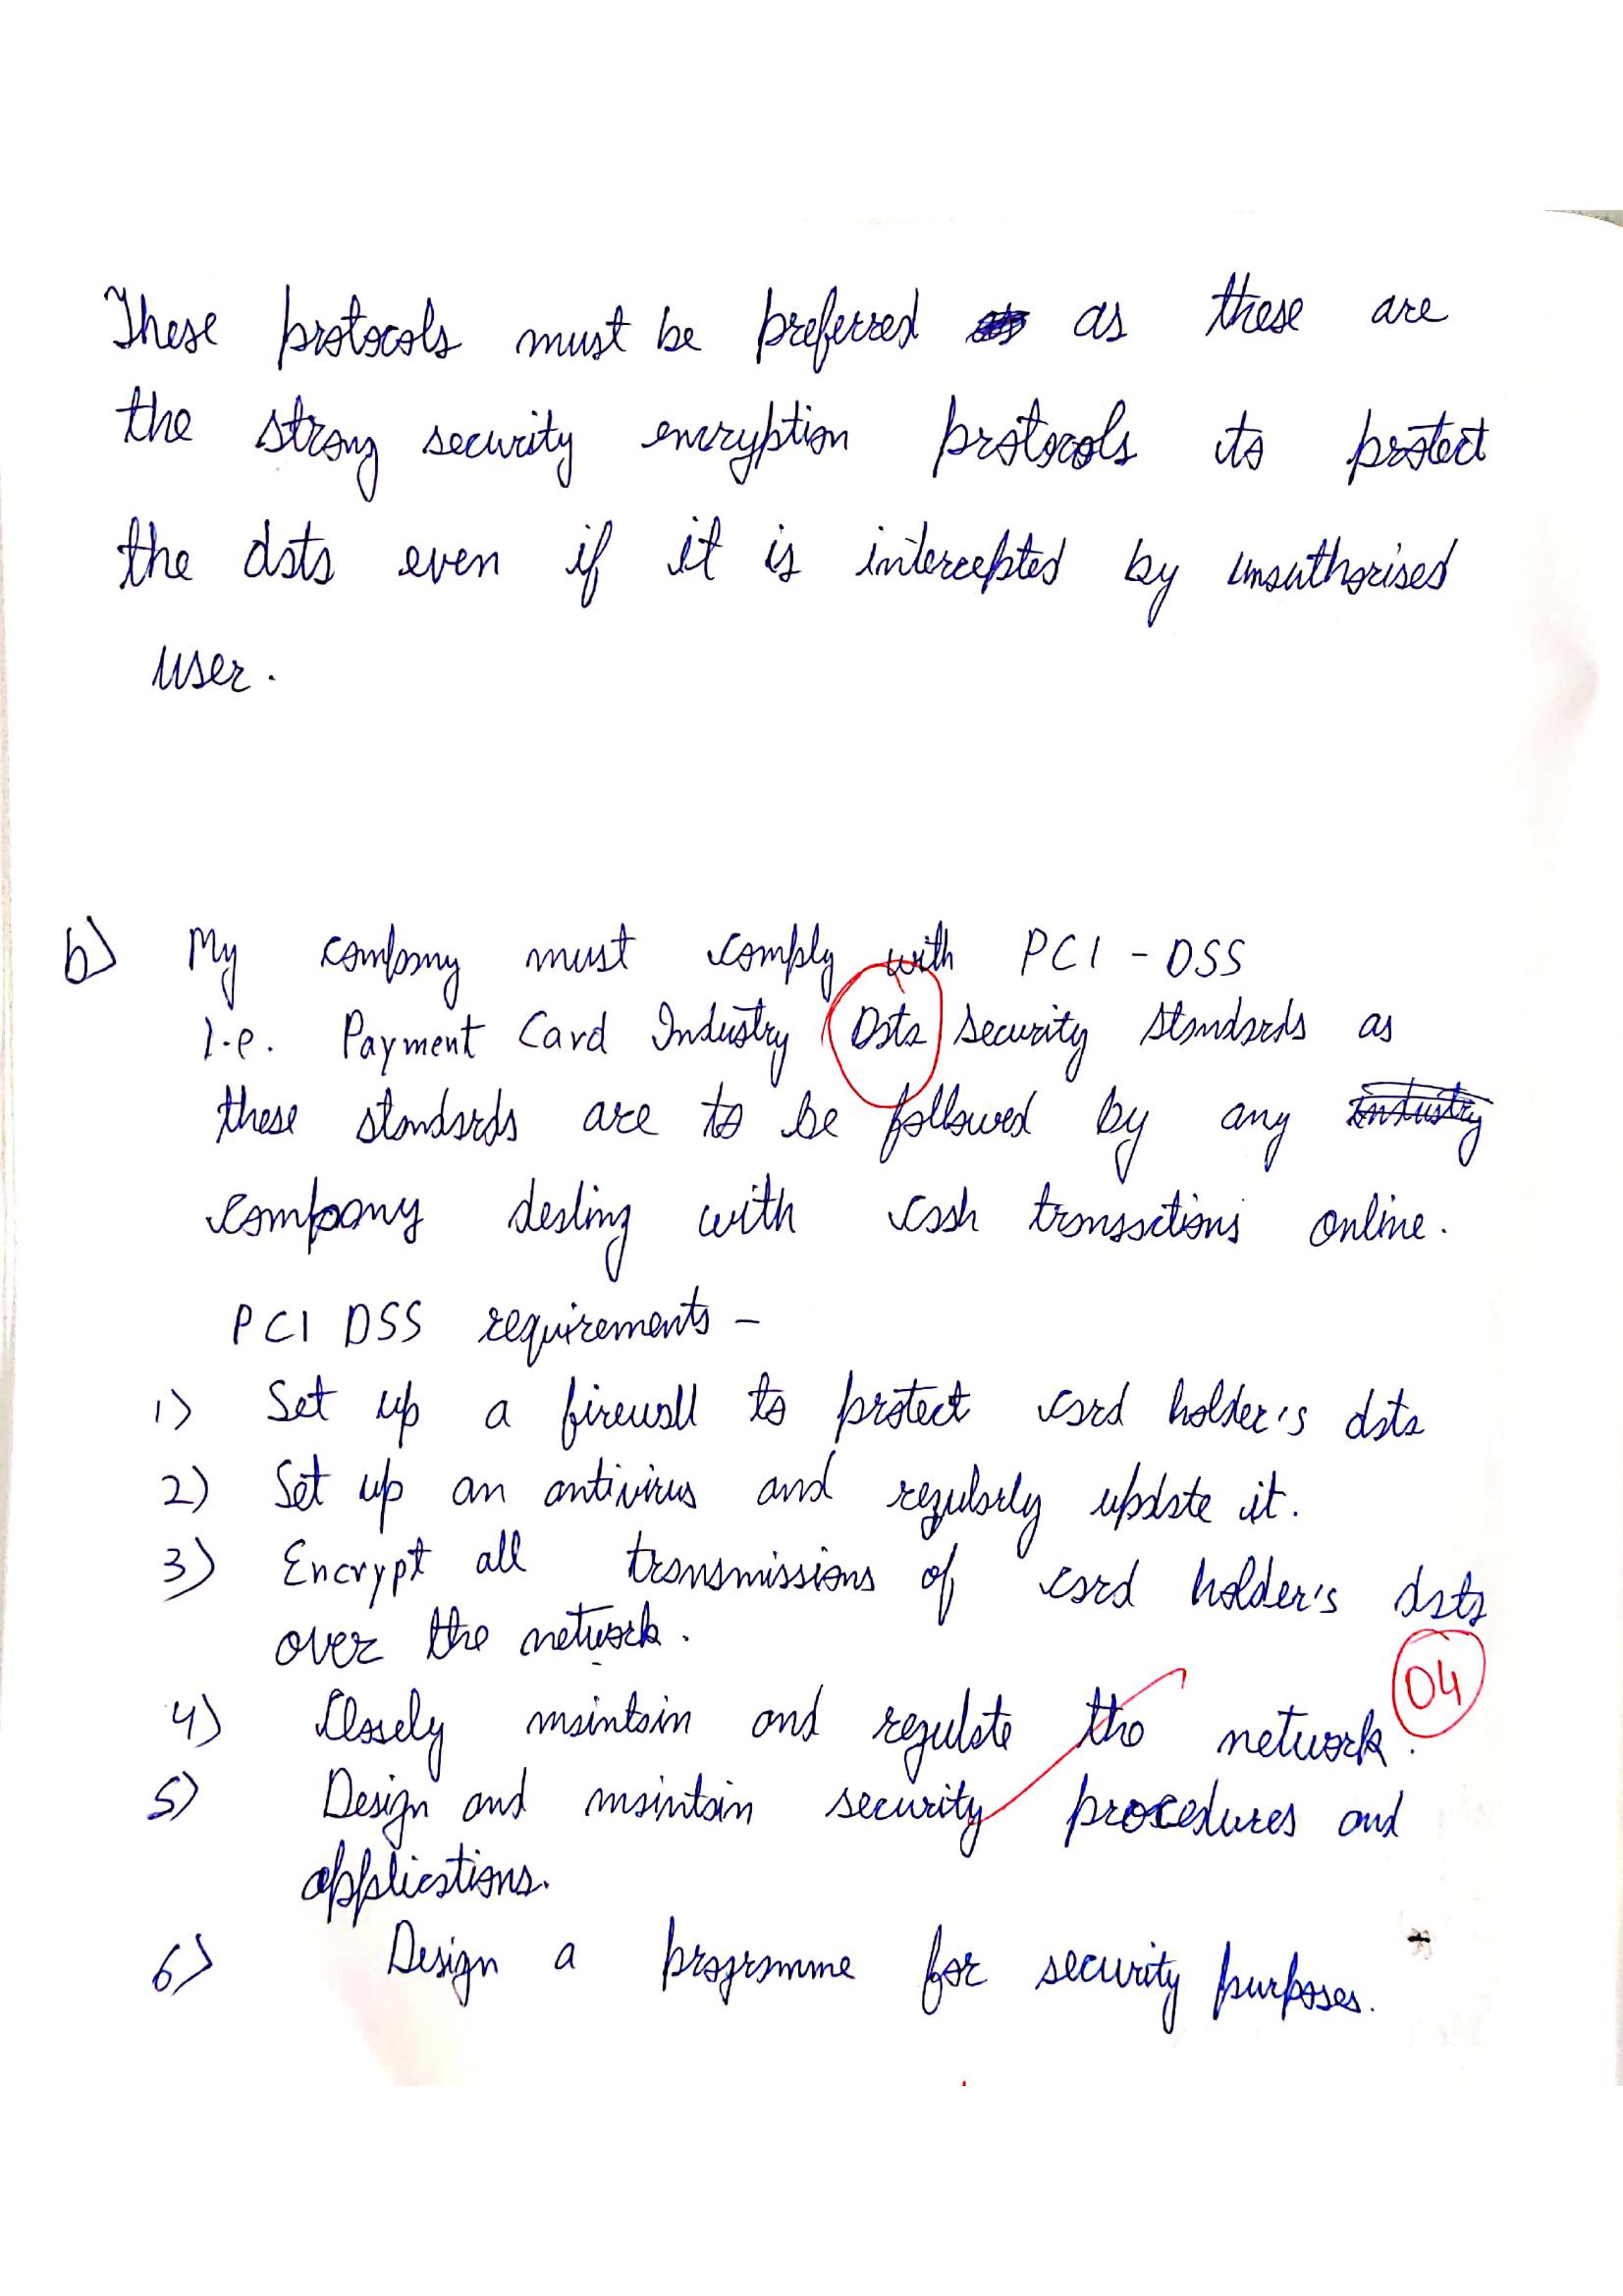 These protocols must be preferred as these are
the strong security encryption protocols to protect
the data even if it is intercepted by unauthorised
user.
b) My company must comply with PCI - DSS
i.e. Payment Card Industry Data security standards as
these standards are to be followed by any industry
company dealing with cash transactions online.
PCI DSS requirements -
1) Set up a firewall to protect card holder's data
2) Set up an antivirus and regularly update it.
3) Encrypt all transmissions of card holder's data
over the network.
04
4) Closely maintain and regulate the network.
5) Design and maintain security procedures and
applications.
6) Design a programme for security purposes.